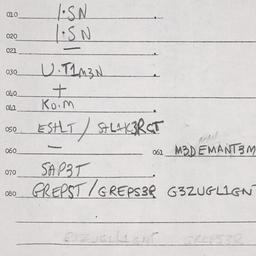 010 1·SN .
020 1·SN
021 — .
030 U·T1M3N .
040 +
041 KO.M .
050 ESHLT / SHL4K3RGT
060 — 061 M3DEMANT3M
070 SAP3T .
080 GREPST / GREPS3R G3ZUGL1GNT